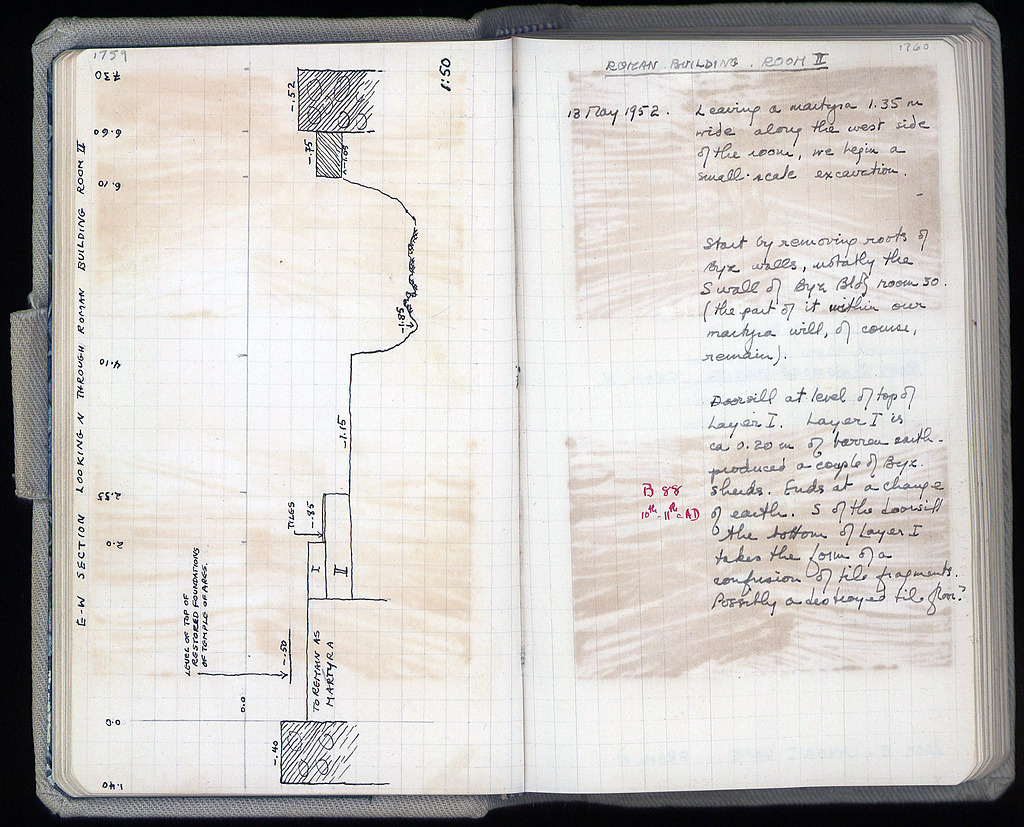 1759
E-W SECTION LOOKING N THROUGH ROMAN BUILDING ROOM II
1:50
7.30
6.60
6.10
4.10
2.55
2.0
0.0
1.40
-.52
-.75
-1.05
-1.85
-1.15
TILES
-.85
I
II
LEVEL OF TOP OF
RESTORED FOUNDATIONS
OF TEMPLE OF ARES.
-.50
TO REMAIN AS
MARTYRA
0.0
-.40
1760
ROMAN BUILDING. ROOM II
13 May 1952.
Leaving a martyra 1.35 m
wide along the west side
of the room, we begin a
small-scale excavation.
Start by removing roots of
Byz walls, notably the
S wall of Byz Bldg room 30.
(the part of it within our
martyra will, of course,
remain).
Doorsill at level of top of
Layer I. Layer I is
ca 0.20 m of barren earth -
produced a couple of Byz.
sherds. Ends at a change
of earth. S of the doorsill
the bottom of Layer I
takes the form of a
confusion of tile fragments.
Possibly a destroyed tile floor?
B 88
10th-11th c AD